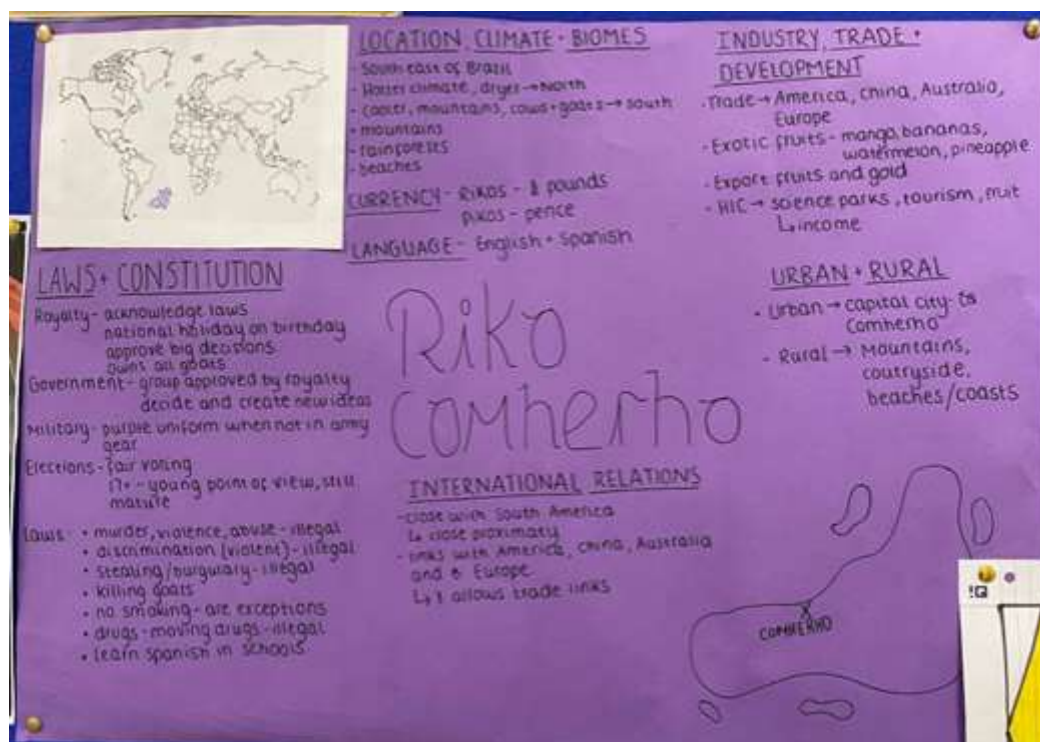 LOCATION, CLIMATE + BIOMES
- South east of Brazil
- Hotter climate, dryer → North
- cooler, mountains, cows + goats → South
- mountains
- rainforests
- beaches
CURRENCY - Rikos - pounds
pikos - pence
LANGUAGE - English + Spanish
INDUSTRY, TRADE +
DEVELOPMENT
- Trade → America, China, Australia,
Europe
- Exotic fruits - mango, bananas,
watermelon, pineapple
- Export fruits and gold
- HIC → science parks, tourism, fruit
↳ income
LAWS + CONSTITUTION
Royalty - acknowledge laws
national holiday on birthday
approve big decisions
owns all goats
Government - group approved by royalty
decide and create new ideas
Military - purple uniform when not in army
gear
Elections - fair voting
17+ - young point of view, still
mature
Laws - • murder, violence, abuse - illegal
• discrimination (violent) - illegal
• stealing/burgulary - illegal
• killing goats
• no smoking - are exceptions
• drugs - moving drugs - illegal
• learn spanish in schools
Riko
Comherho
URBAN + RURAL
• Urban → capital city -
Comherho
• Rural → Mountains,
coutryside,
beaches/coasts
INTERNATIONAL RELATIONS
- close with South America
↳ close proximaty
- links with America, China, Australia
and Europe
↳ allows trade links
COMHERHO
!Q